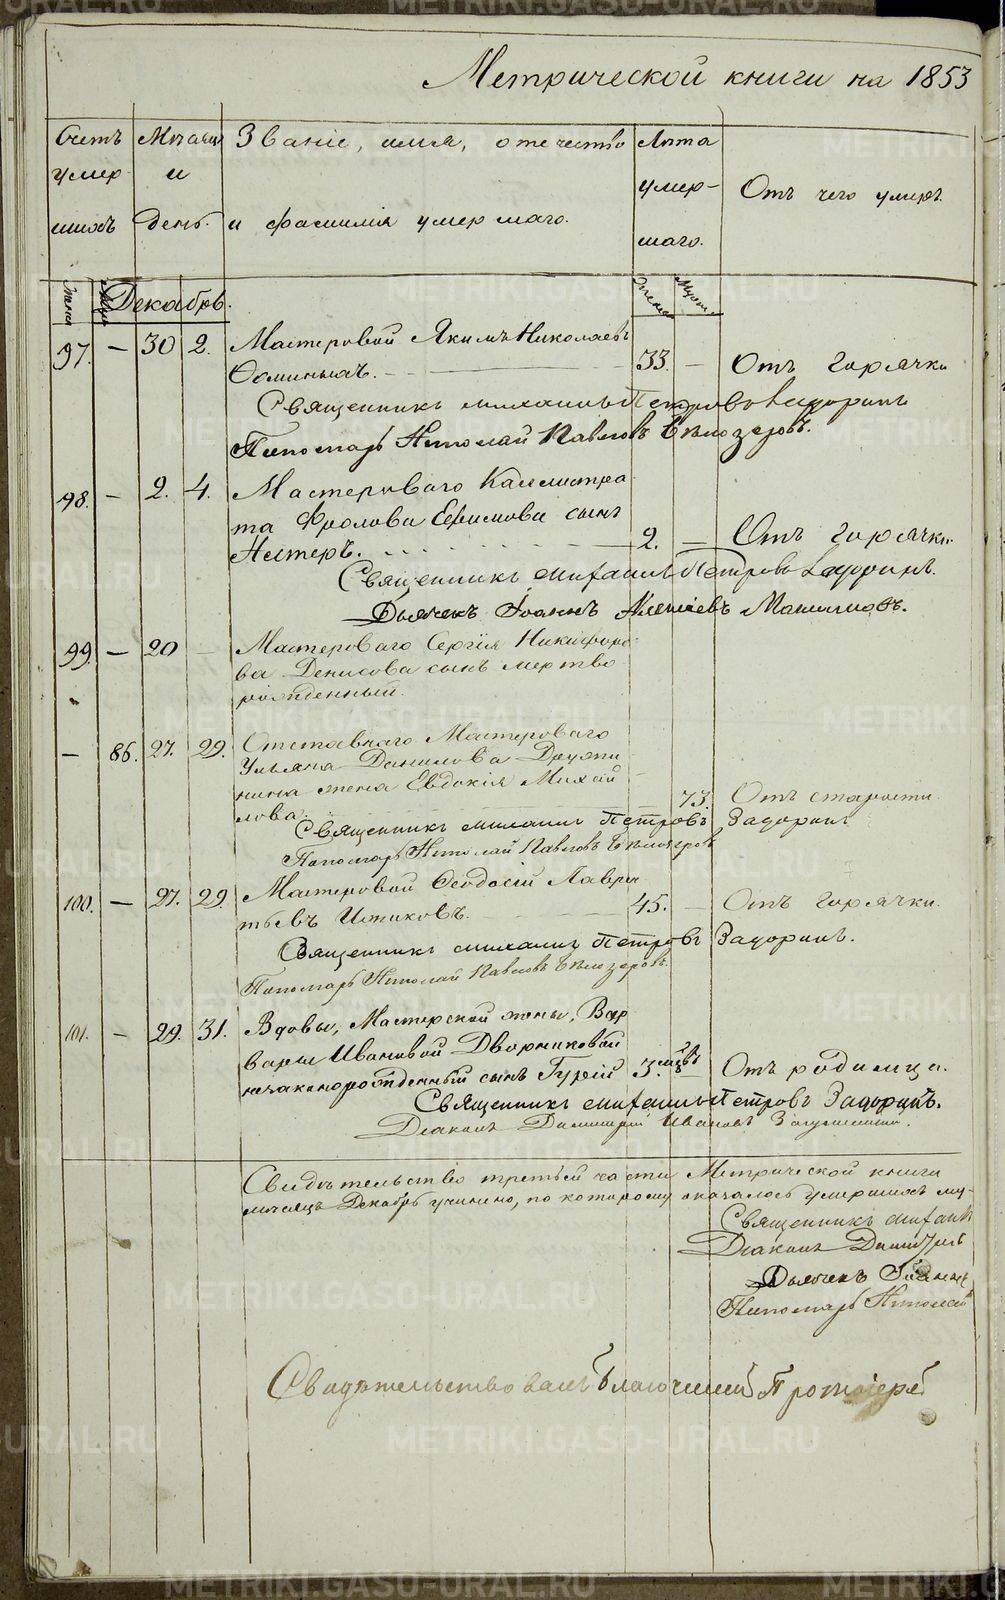 Метрической книги на 1853
Счетъ умер- шихъ
Мѣсяцъ и день.
Званіе, имя, отечество и фамилія умершаго.
Лѣта умер- шаго.
Отъ чего умеръ.
Декабрь.
97. — 30 2. Мастеровой Якимъ Николаевъ
Ѳоминыхъ. 33. — Отъ горячки
Священникъ Михаилъ Петровъ Задоринъ
Пономарь Николай Павловъ Бѣлозеровъ.
98. — 2. 4. Мастероваго Каллистра-
та Фролова Ефимова сынъ
Нестеръ. 2. — Отъ горячки.
Священникъ Михаилъ Петровъ Задоринъ.
Дьячекъ Іоаннъ Алексіевъ
99. — 20 — Мастероваго Сергія Никифоро-
ва Денисова сынъ мертво
рожденный.
— 86. 27. 29. Отставнаго Мастероваго
Ульяна Данилова
жена Евдокія Михай
лова. 73. Отъ старости
Священникъ Михаилъ Петровъ Задоринъ
Пономарь Николай Павловъ Бѣлозеровъ
100. — 27. 29. Мастеровой Ѳеодосій Лаврен
тьевъ 45. — Отъ горячки.
Священникъ Михаилъ Петровъ Задоринъ.
Пономарь Николай Павловъ Бѣлозеровъ.
101. — 29. 31. Вдовы, Мастерской жены, Вар
вары Ивановой Дворниковой
незаконорожденный сынъ Гурій 3. мѣсц. — Отъ родимца.
Священникъ Михаилъ Петровъ Задоринъ.
Діаконъ Димитрій Ивановъ
Свидѣтельство третьей части Метрической книги
мѣсяцъ Декабрь учинено, по которому оказалось умершихъ му-
Священникъ Михаи
Діаконъ Димитрій
Дьячекъ Іоаннъ
Пономарь Николай
Свидѣтельствовалъ Благочинный Протоіерей
METRIKI.GASO-URAL.RU